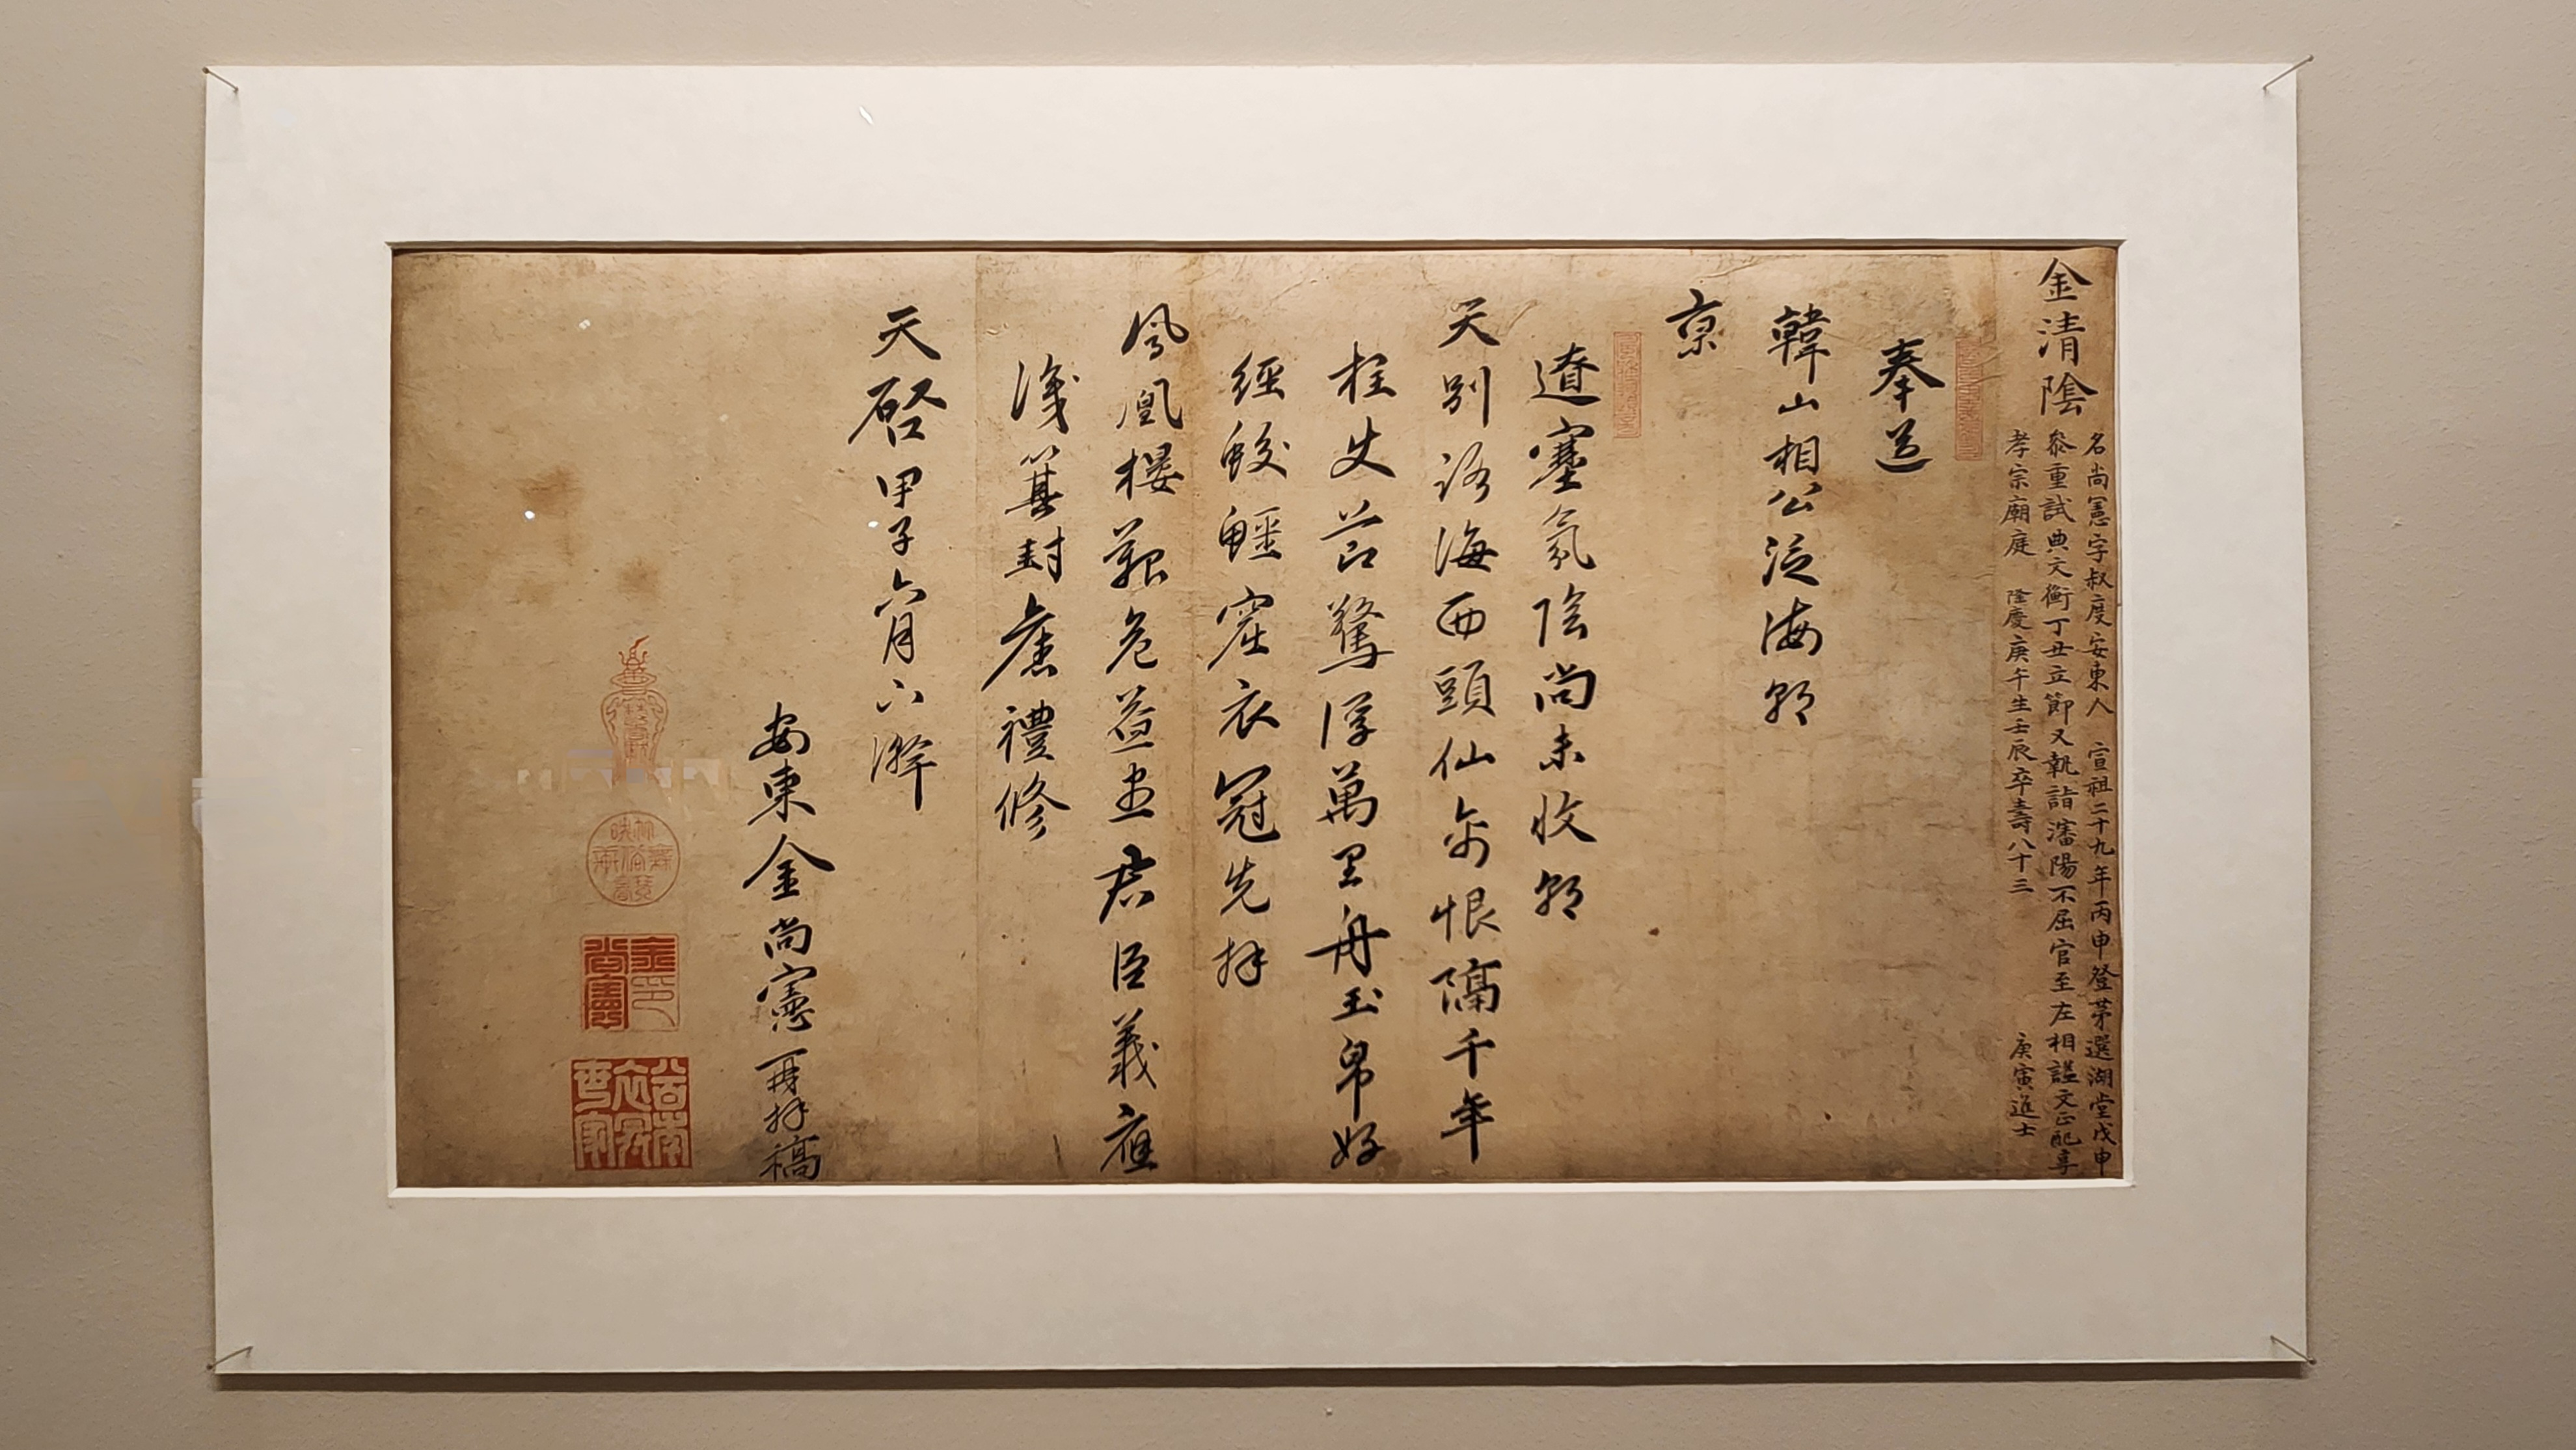 金清陰
名尚憲字叔度安東人 宣祖二十九年丙申登第選湖堂戊申
參重試典文衡丁丑立節又執詣瀋陽不屈官至左相諡文正配享
孝宗廟庭 隆慶庚午生壬辰卒壽八十三 庚寅進士
奉送
韓山相公泛海朝
京
遼塞氛陰尚未收朝
天別路海西頭仙舟恨隔千年
柱使節驚浮萬里舟玉帛好
經蛟鱷窟衣冠先拜
鳳凰樓艱危益盡君臣義應
識箕封舊禮修
天啓甲子六月下澣
安東金尚憲再拜稿